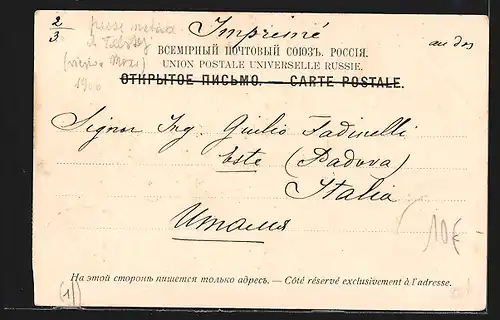 2/3
Imprimé
au dos
ВСЕМІРНЫЙ ПОЧТОВЫЙ СОЮЗЪ. РОССІЯ.
UNION POSTALE UNIVERSELLE RUSSIE.
ОТКРЫТОЕ ПИСЬМО. — CARTE POSTALE.
1906
Signor Ing. Giulio Tadinelli
Este (Padova)
Italia
Италия
10€
На этой сторонѣ пишется только адресъ. — Côté réservé exclusivement à l'adresse.
(1)